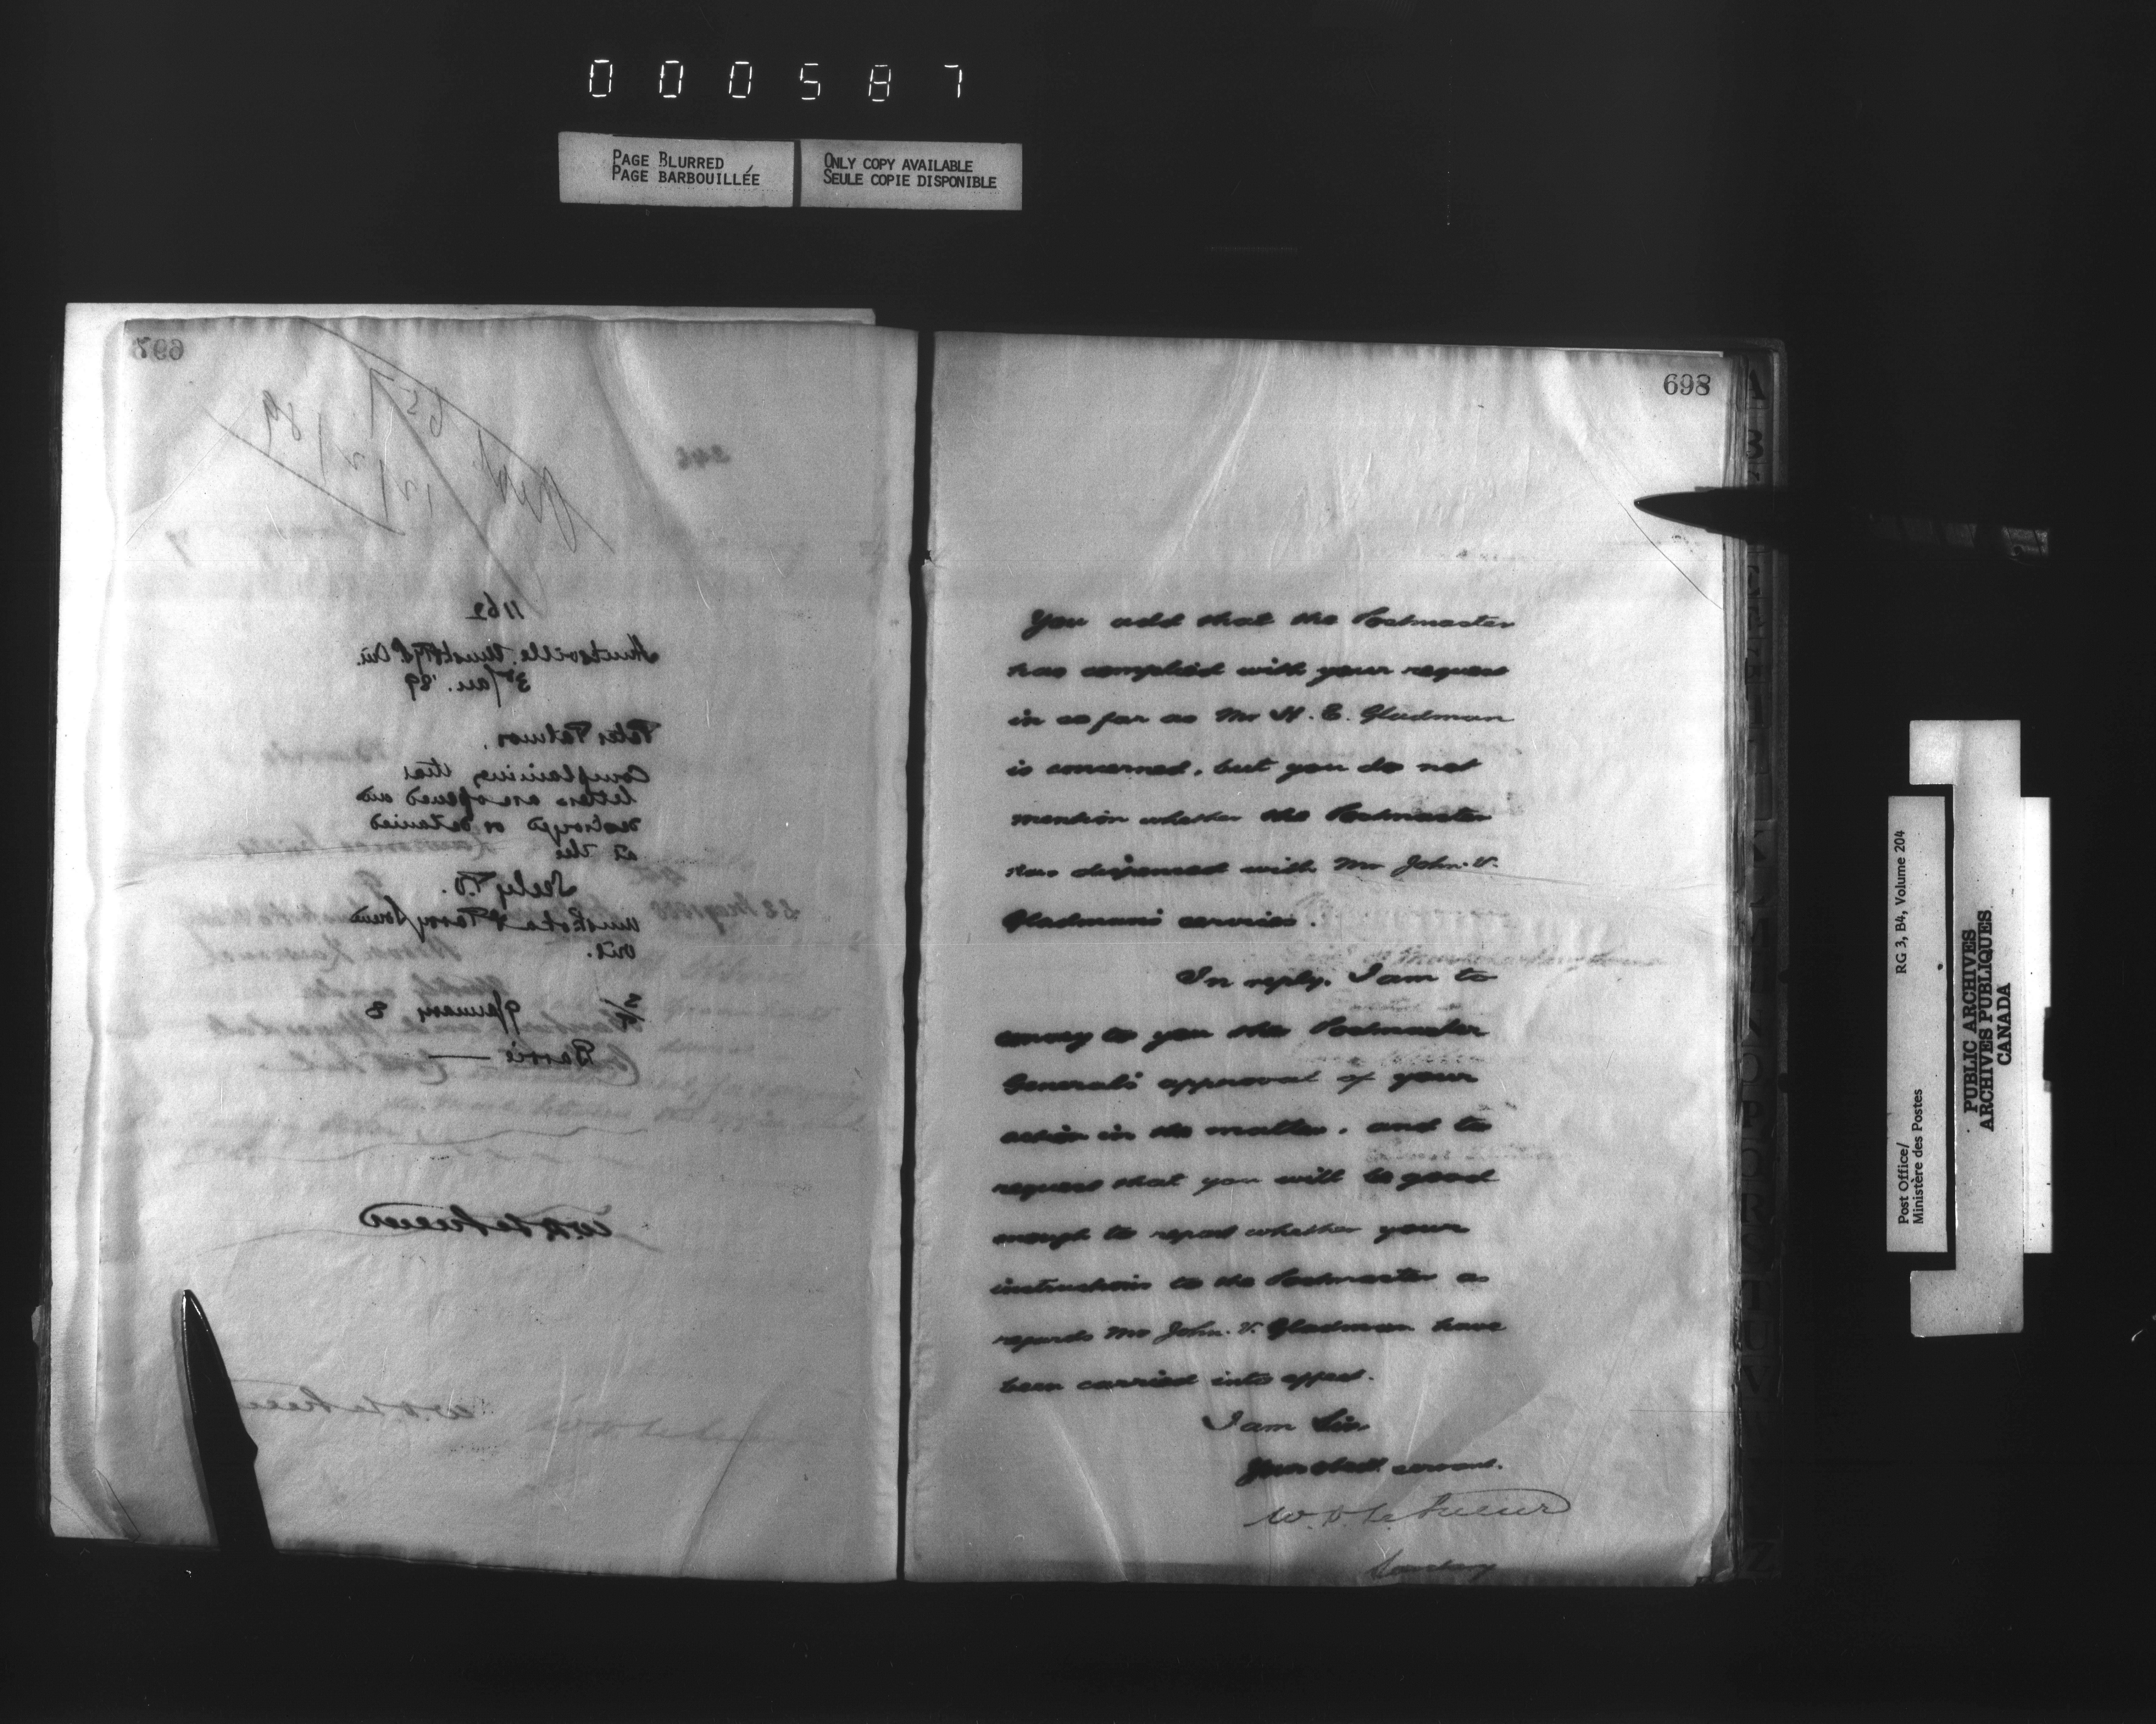 000587
PAGE BLURRED
PAGE BARBOUILLÉE
ONLY COPY AVAILABLE
SEULE COPIE DISPONIBLE
697
657
12/2/89
246
1162
Huntsville, Musk & P.S. Ont.
3rd Jan. '89
Peter
Complaining that
letters are opened and
destroyed or detained
at the
Seely P.O.
Muskoka & Parry Sound
Ont.
January 8
Barrie —
W. D. LeSueur
W. D. LeSueur
698
You add that the Postmaster
has complied with your request
in so far as Mr H. E. Gladman
is concerned, but you do not
mention whether the Postmaster
has dispensed with Mr John. V.
Gladman's services.
In reply, I am to
convey to you the Postmaster
General's approval of your
action in the matter, and to
request that you will be good
enough to report whether your
instructions to the Postmaster as
regards Mr John. V. Gladman have
been carried into effect.
I am Sir
Your obedt. servant.
W. D. LeSueur
Secretary
Post Office/
Ministère des Postes
RG 3, B4, Volume 204
PUBLIC ARCHIVES
ARCHIVES PUBLIQUES
CANADA